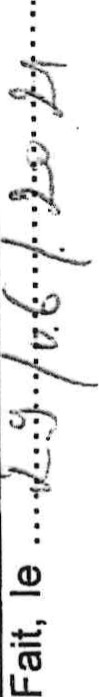 Fait, le ....29/06/2021........